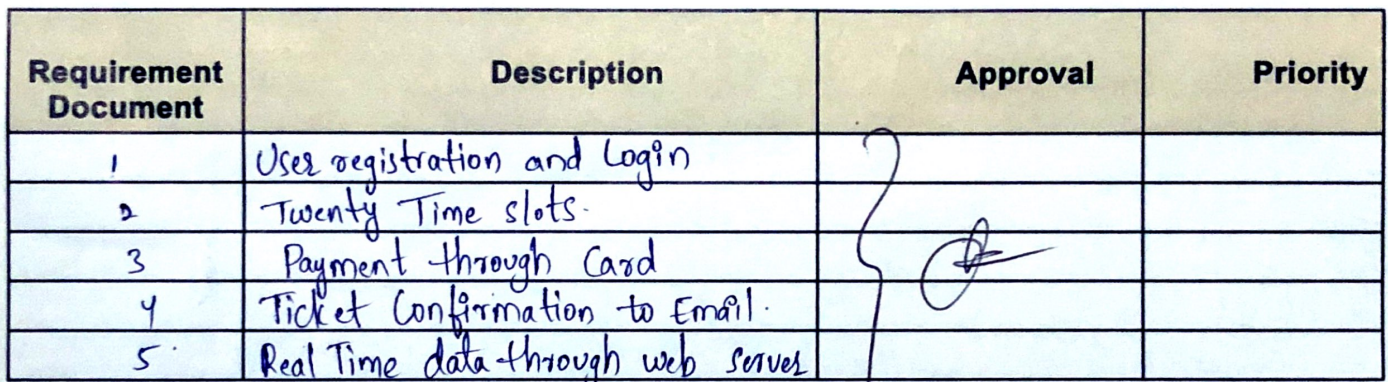 Requirement Document Description Approval Priority
1 User registration and Login
2 Twenty Time slots.
3 Payment through Card
4 Ticket Confirmation to Email.
5. Real Time data through web server